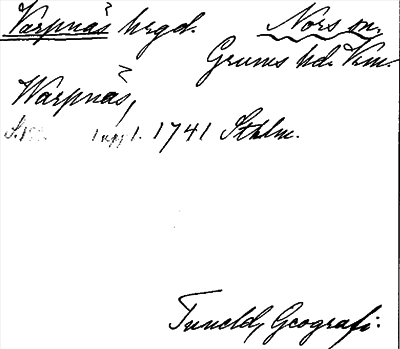 Varpnäs hrgd. Nors sn.
Grums hd. Vrm.
Warpnäs,
S. 1 uppl. 1741 Sthlm.
Tuneld, Geografi.